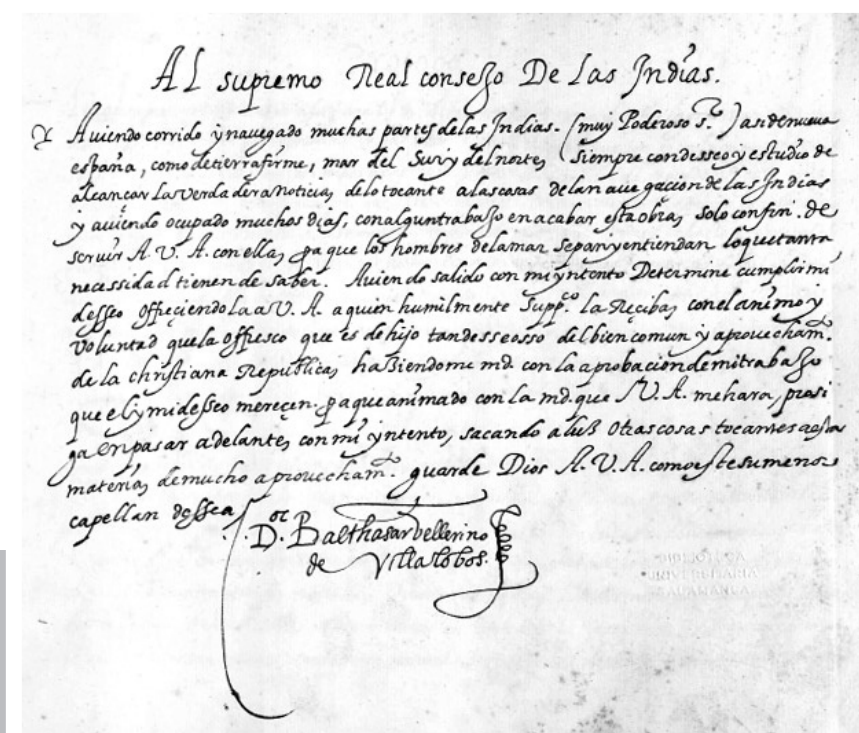 Al supremo Real conseJo De las Indias.
Auiendo corrido y nauegado muchas partes de las Indias. (muy Poderoso s.or) asi denueua
españa, como detierrafirme, mar del Sur y del norte, siempre con desseo y estudio de
alcançar la verdadera noticia, de lo tocante a las cosas de la nauegacion de las Indias
y auiendo ocupado muchos dias, con algun trabaJo en acabar esta obra, solo con fin. de
seruir A. V. A. con ella, pa que los hombres de la mar sepan y entiendan lo que tanta
necessidad tienen de saber. Auiendo salido con mi yntento Determine cumplir mi
desseo offreçiendola a V. A. a quien humilmente Supp.co la Reçiba, con el animo y
voluntad que la offresco que es de hijo tan desseosso del bien comun y aprouecham.to
de la christiana Republica, haZiendome md. con la aprobacion de mi trabaJo
que el y mi desseo mereçen. pa que animado con la md. que V. A. me hara, prosi
ga en pasar adelante, con mi yntento, sacando a luz otras cosas tocantes a esta
materia, de mucho aprouecham.to guarde Dios A. V. A. como este su menor
capellan dessea
D.or Balthasar vellerino
de Villalobos.